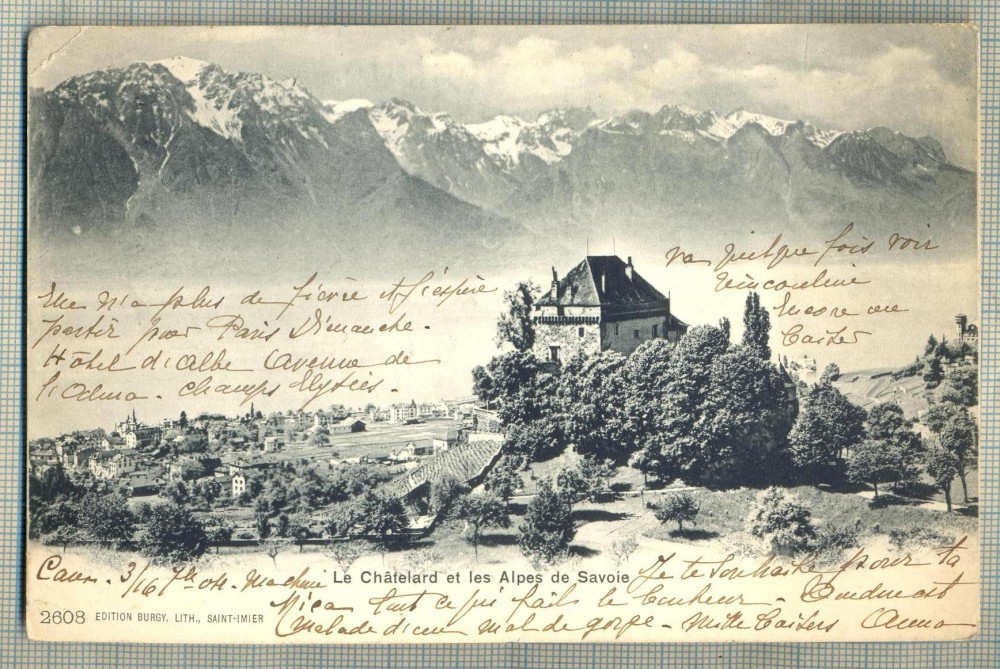 va quelque fois voir
Encore un
baiser
plus de fièvre et j'espère
partir pour Paris Dimanche.
Hôtel d'Albe Avenue de
l'Alma. Champs Elysées.
Caux. 3/16 04. Ma chère
Le Châtelard et les Alpes de Savoie
Je te souhaite pour ta
Mica tout ce qui fait le bonheur.
malade d'un mal de gorge. Mille baisers Anna
2608 EDITION BURGY, LITH., SAINT-IMIER